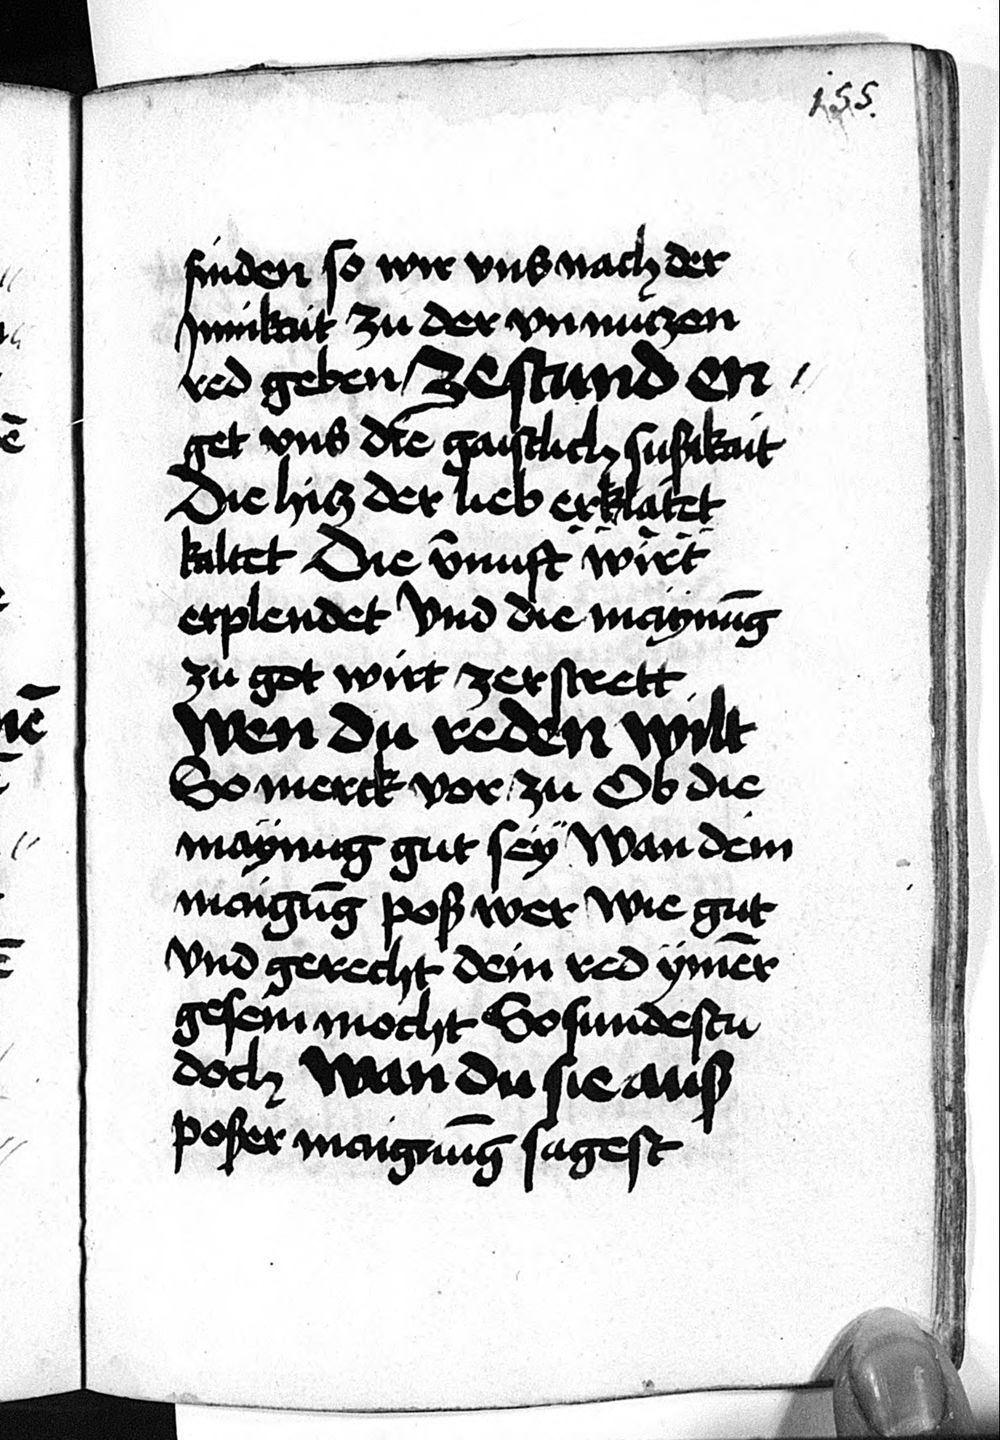 155.
finden so wir vns nach der
Jnnikait zu der vnnützen
red geben Zestund en
get vns die gaistlich sußikait
Die hitz der lieb erklatet
kaltet Die v̄nuft wirt
erplendet Vnd die maÿnūg
zu got wirt zerstrett
Wen du reden wilt
So merck vor zu Ob die
maÿnug gut seÿ Wan dein
maigūg poß wer Wie gut
Vnd gerecht dein red ÿmēr
gesein mocht So sundestu
doch Wan du sie auß
poßer maignūg sagest